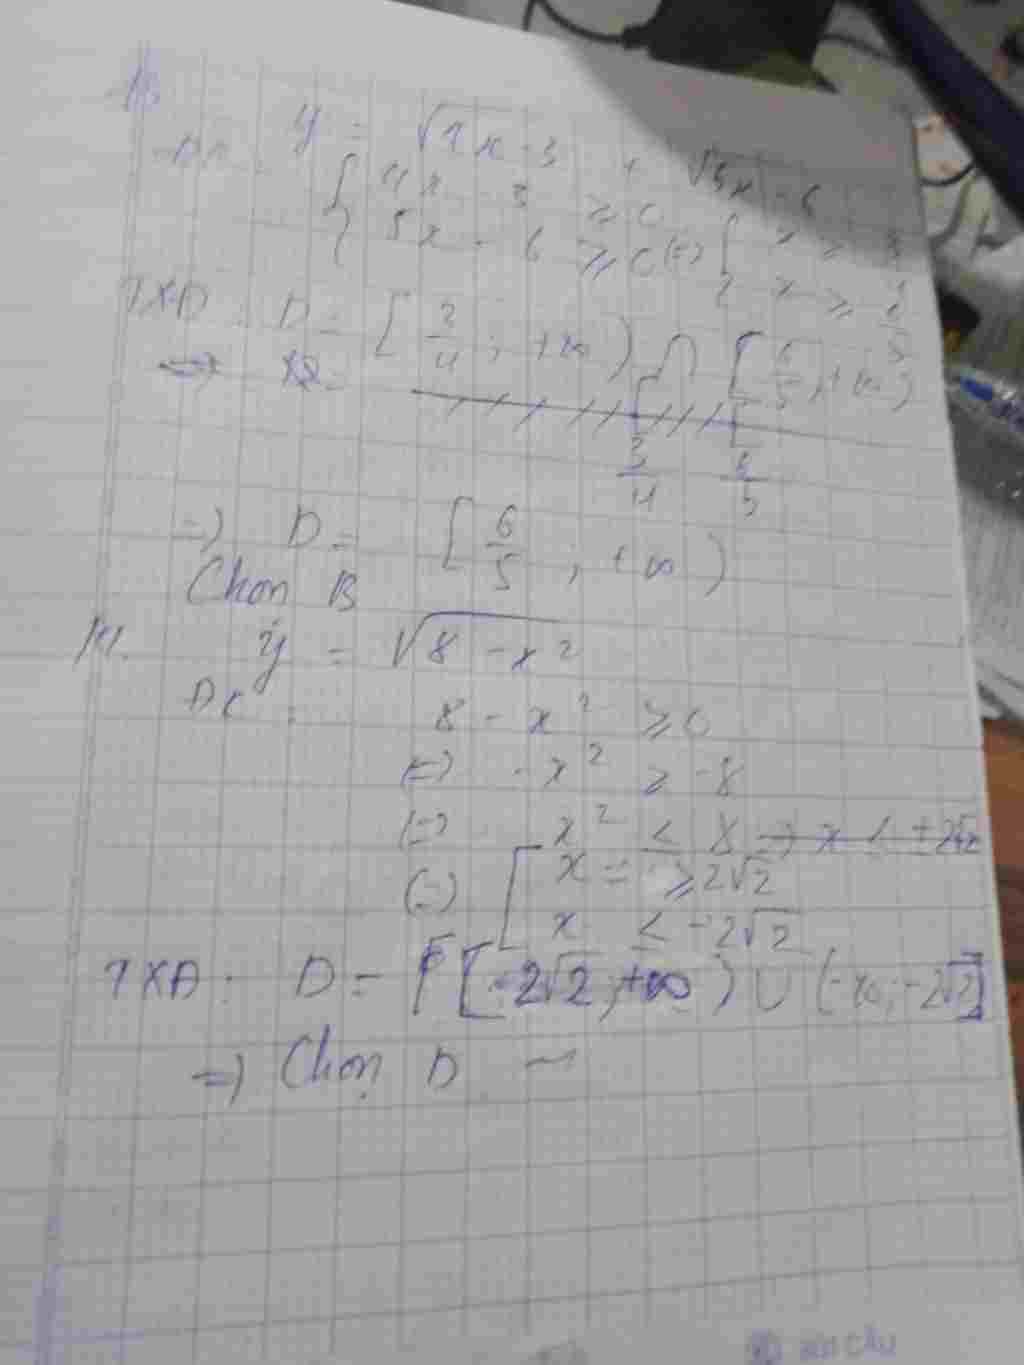 y = √4x - 3 + √5x - 6
{ 4x - 3 ≥ 0
{ 5x - 6 ≥ 0 (=) { x ≥
{ x ≥
TXD: D = [ 3/4 ; +∞ ) ∩ [ 6/5 ; +∞ )
3/4 6/5
=) D = [ 6/5 ; +∞ )
Chọn B
14. y = √8 - x²
ĐK : 8 - x² ≥ 0
(=) -x² ≥ -8
(=) x² ≤ 8
(=) [ x ≥ 2√2
x ≤ -2√2
TXĐ: D = [ -2√2 ; +∞ ) ∪ (-∞ ; -2√2 ]
=) Chọn D